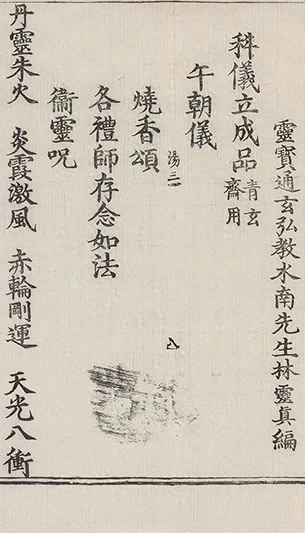 靈寶通玄弘教水南先生林靈真編
科儀立成品青玄齋用
午朝儀
湯三一
燒香頌
各禮師存念如法
衞靈呪
丹靈朱火　炎霞激風　赤輪剛運　天光八衝